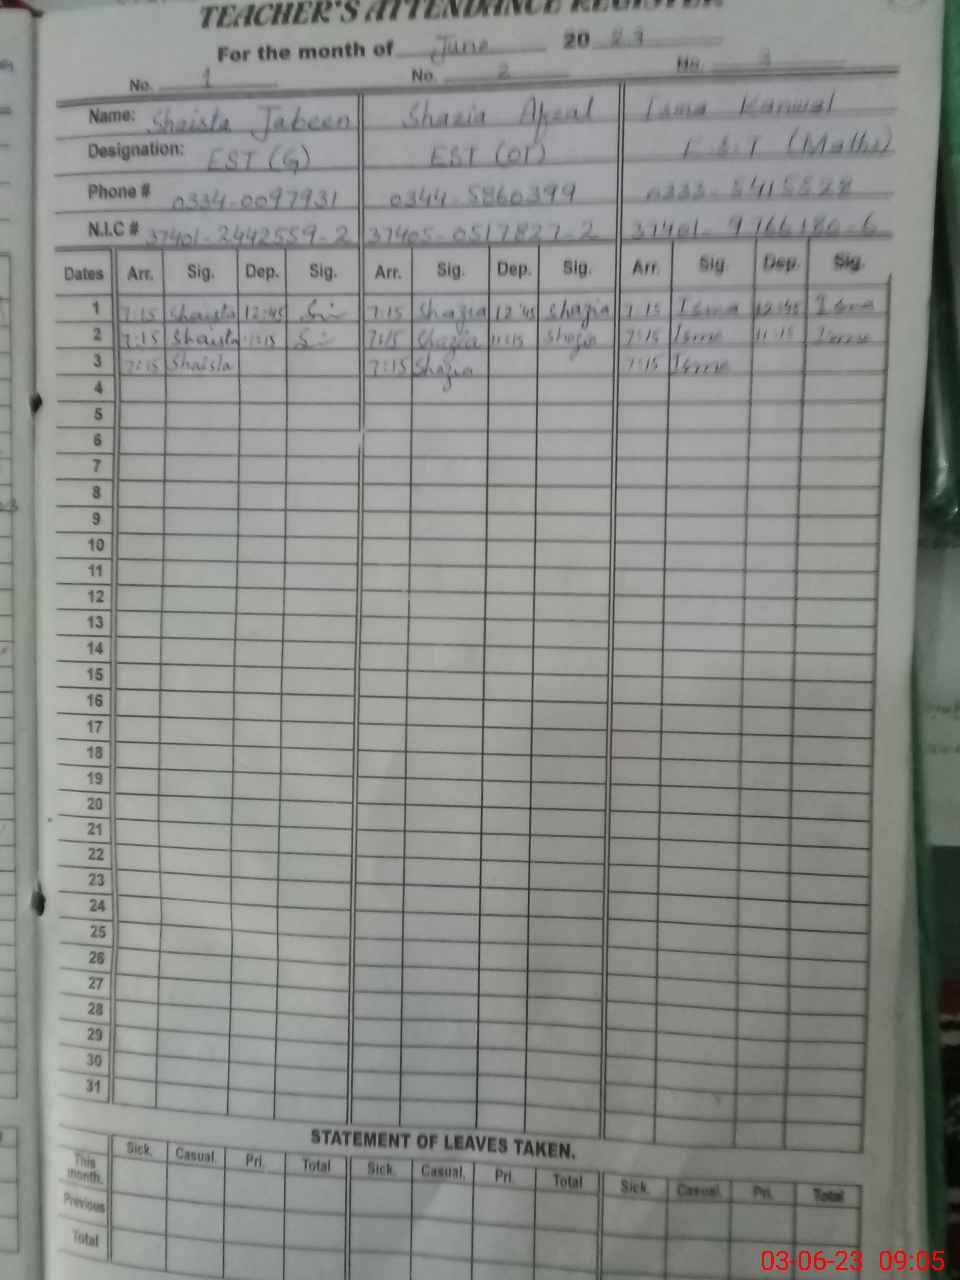 TEACHER'S ATTENDANCE REGISTER
For the month of June 2023
No. 1 No. 2 No. 3
Name: Shaista Jabeen Shazia Afzal Isma Kanwal
Designation: EST (G) EST (OT) E.S.T (Maths)
Phone # 0334-0097931 0344-5860399 0333-5415528
N.I.C # 37401-2442559-2 37405-0517827-2 37401-9766180-6
Dates Arr. Sig. Dep. Sig. Arr. Sig. Dep. Sig. Arr. Sig. Dep. Sig.
1 7:15 Shaista 12:45 7:15 Shazia 12:45 Shazia 7:15 Isma 12:45 Isma
2 7:15 Shaista 11:15 7:15 Shazia 11:15 Shazia 7:15 Isma 11:15 Isma
3 7:15 Shaista 7:15 Shazia 7:15 Isma
4
5
6
7
8
9
10
11
12
13
14
15
16
17
18
19
20
21
22
23
24
25
26
27
28
29
30
31
STATEMENT OF LEAVES TAKEN.
Sick. Casual. Pri. Total Sick. Casual. Pri. Total Sick. Casual. Pri. Total
This month.
Previous
Total
03-06-23 09:05